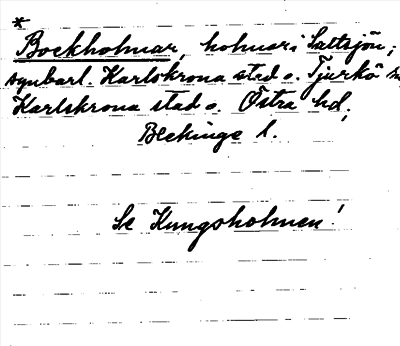 *
Bockholmar, holmar i Saltsjön;
synbarl. Karlskrona stad o. Tjurkö
Karlskrona stad o. Östra hd,
Blekinge l.
Se Kungsholmen!